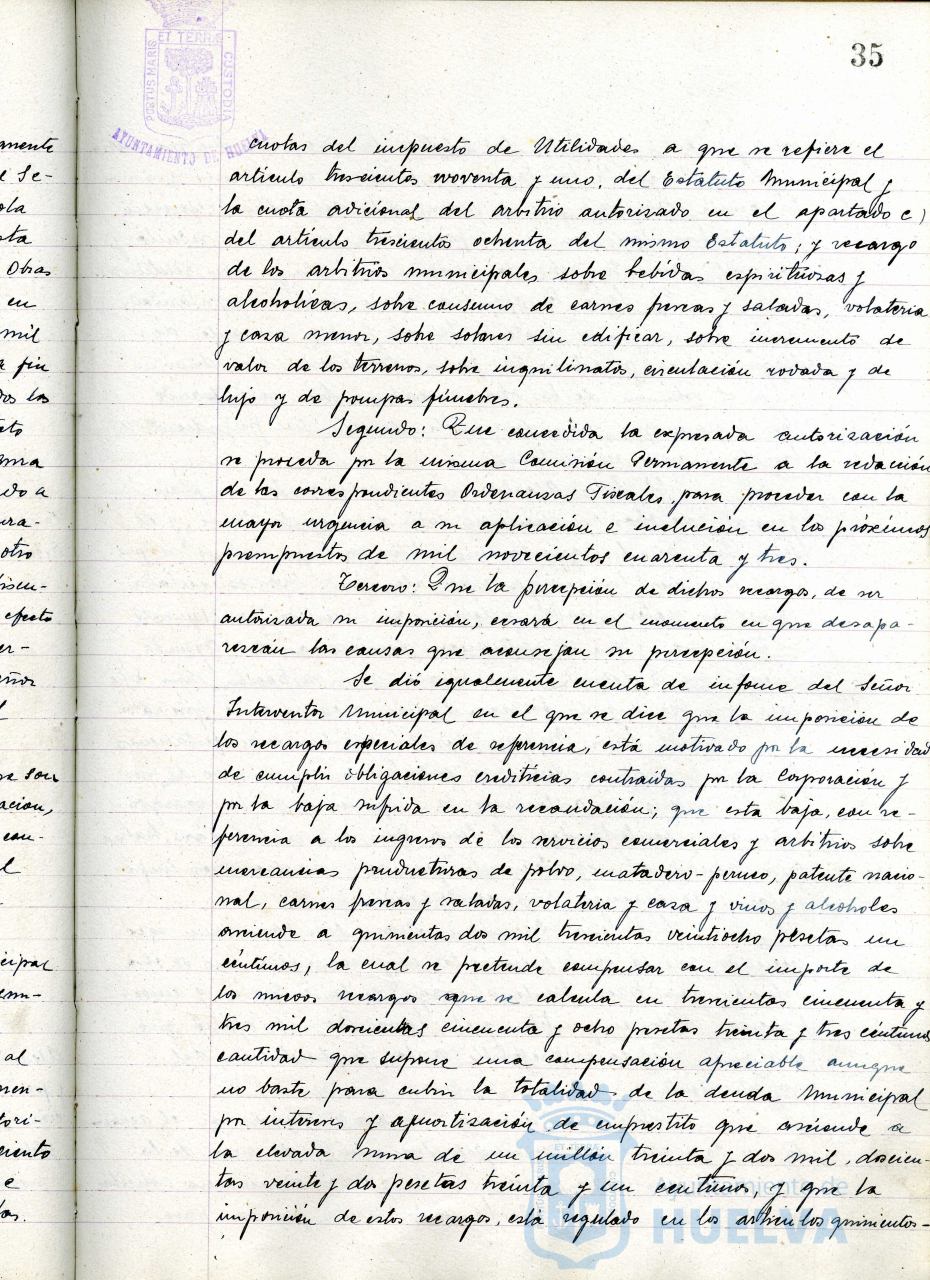 35
PORTUS MARIS ET TERRÆ CUSTODIA
AYUNTAMIENTO DE HUELVA
cuotas del impuesto de Utilidades a que se refiere el
articulo trescientos noventa y uno, del Estatuto Municipal y
la cuota adicional del arbitrio autorizado en el apartado c)
del artículo trescientos ochenta del mismo Estatuto; y recargo
de los arbitrios municipales sobre bebidas espirituosas y
alcoholicas, sobre consumo de carnes frescas y saladas, volateria
y caza menor, sobre solares sin edificar, sobre incremento de
valor de los terrenos, sobre inquilinatos, circulación rodada y de
lujo y de pompas fúnebres.
Segundo: Que concedida la expresada autorización
se proceda por la misma Comisión Permanente a la redacción
de las correspondientes Ordenanzas Fiscales, para proceder con la
mayor urgencia a su aplicación e inclución en los próximos
presupuestos de mil novecientos cuarenta y tres.
Tercero: Que la percepción de dichos recargos, de ser
autorizada su imposición, cesará en el momento en que desapa-
rescán las causas que aconsejan su percepción.
Se dió igualmente cuenta de informe del Señor
Interventor Municipal en el que se dice que la imposición de
los recargos especiales de referencia, está motivado por la necesidad
de cumplir obligaciones crediticias contraidas por la Corporación y
por la baja sufrida en la recaudación; que esta baja, con re-
ferencia a los ingresos de los servicios comerciales y arbitrios sobre
mercancias productoras de polvo, matadero-perneo, patente nacio-
nal, carnes frescas y saladas, volateria y caza y vinos y alcoholes
asciende a quinientas dos mil trescientas veintiocho pesetas un
céntimos, la cual se pretende compensar con el importe de
los nuevos recargos que se calcula en trescientas cincuenta y
tres mil doscientas cincuenta y ocho pesetas treinta y tres céntimos
cantidad que supone una compensación apreciable aunque
no baste para cubrir la totalidad de la deuda Municipal
por intereses y amortización de emprestito que asciende a
la elevada suma de un millón treinta y dos mil, doscien-
tas veinte y dos pesetas treinta y un centimos, y que la
imposición de estos recargos, está regulado en los artículos quinientos-
Ayuntamiento de
HUELVA